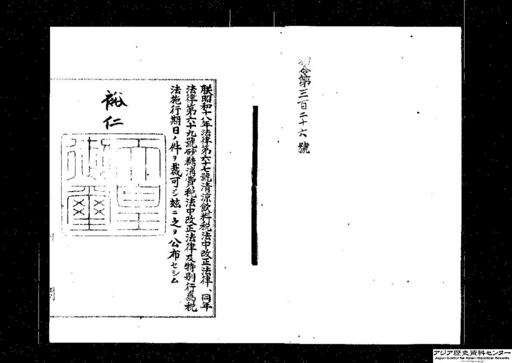 勅令第三百二十六號
朕昭和十八年法律第六十七號清涼飲料税法中改正法律、同年
法律第六十九號砂糖消費税法中改正法律及特別行爲税
法施行期日ノ件ヲ裁可シ玆ニ之ヲ公布セシム
裕仁
天皇
御璽
アジア歴史資料センター
Japan Center for Asian Historical Records